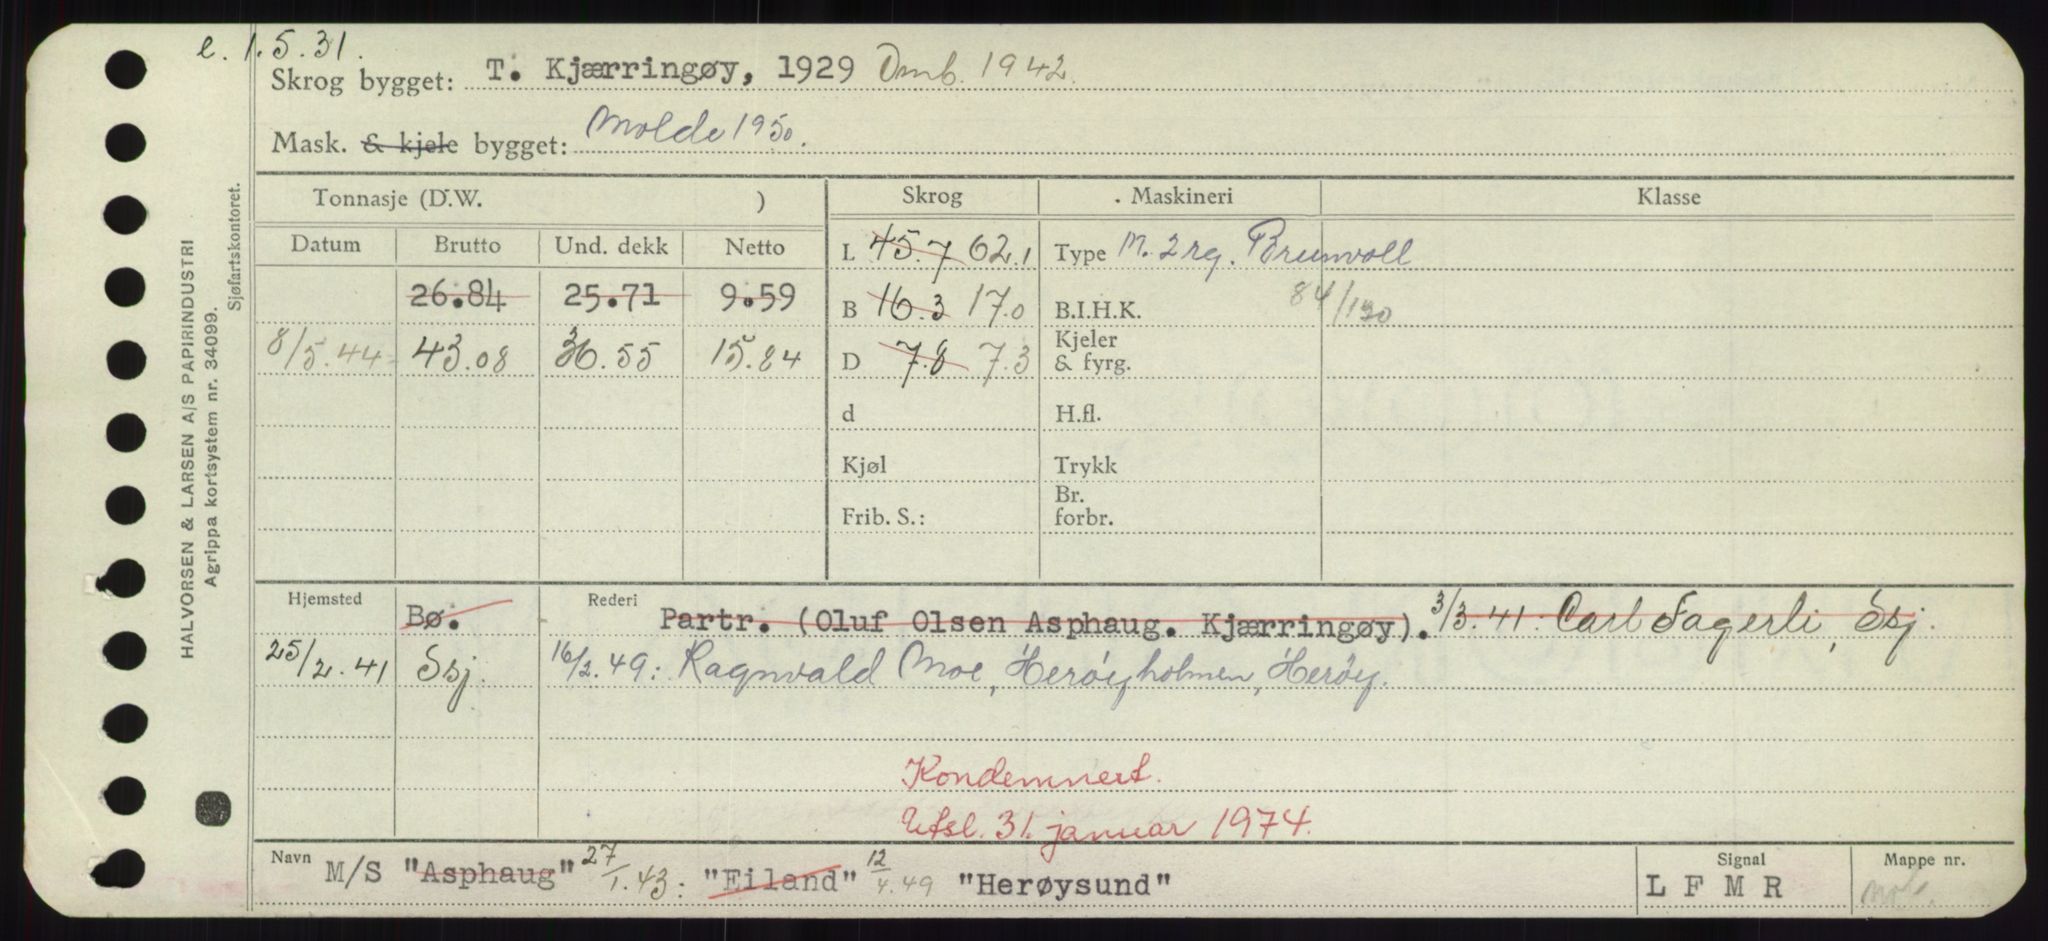 e. 1.5.31.
Skrog bygget: T. Kjærringøy, 1929 Omb. 1942.
Mask. & kjele bygget: Molde 1950.
Tonnasje (D.W. ) Skrog Maskineri Klasse
Datum Brutto Und. dekk Netto L 45.7 62.1 Type M. 2 rg. Brunvoll
26.84 25.71 9.59 B 16.3 17.0 B.I.H.K. 84/130
8/5.44 43.08 36.55 15.84 D 7.8 7.3 Kjeler & fyrg.
d H.fl.
Kjøl Trykk
Frib. S.: Br. forbr.
Hjemsted Bø. Rederi Partr. (Oluf Olsen Asphaug. Kjærringøy). 3/3.41: Carl Fagerli, Ssj.
25/2.41 Ssj. 16/2.49: Ragnvald Moe, Herøyholmen, Herøy.
Kondemnert.
Utsl. 31. januar 1974.
Navn M/S "Asphaug" 27/1.43: "Eiland" 12/4.49 "Herøysund" Signal L F M R Mappe nr.
HALVORSEN & LARSEN A/S PAPIRINDUSTRI
Agrippa kortsystem nr. 34099.
Sjøfartskontoret.